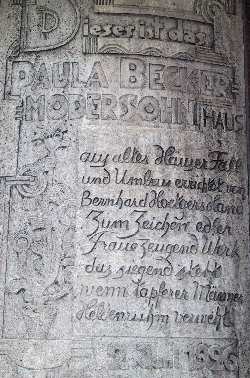 Dieses ist das
PAULA BECKER=
MODERSOHN HAUS
aus alter Häuser Fall
und Umbau errichtet von
Bernhard Hoetgers Hand
Zum Zeichen edler
Fraue zeugend Werk
das siegend steht
wenn tapferer Männer
Heldenruhm verweht